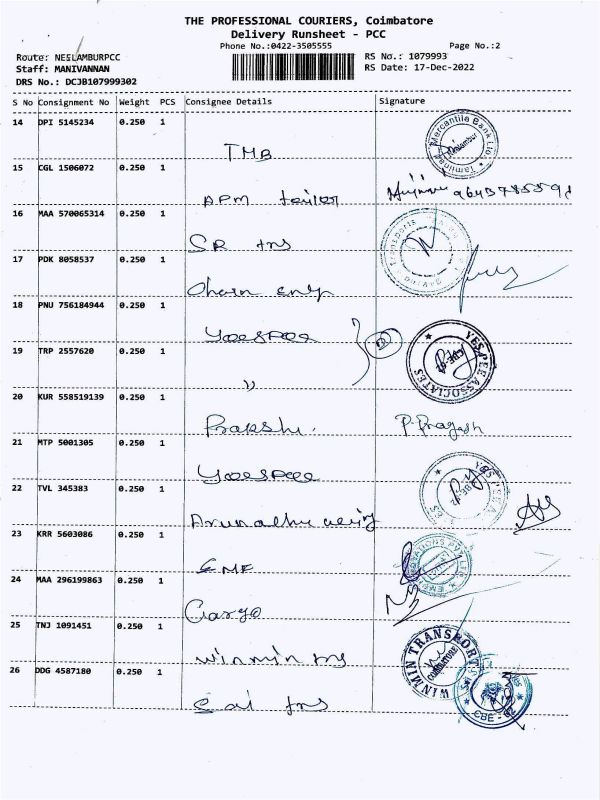 THE PROFESSIONAL COURIERS, Coimbatore
Delivery Runsheet - PCC
Phone No.:0422-3505555
Page No.:2
Route: NEELAMBURPCC
RS No.: 1079993
Staff: MANIVANNAN
RS Date: 17-Dec-2022
DRS No.: DCJB107999302
S No Consignment No Weight PCS Consignee Details Signature
14 DPI 5145234 0.250 1
TMB
Mercantile Bank Ltd.
15 CGL 1506072 0.250 1
APM
16 MAA 570065314 0.250 1
SR trs
17 PDK 8058537 0.250 1
18 PNU 756184944 0.250 1
Yoespee
19 TRP 2557620 0.250 1
"
YES PEE ASSOCIATES
CBE
20 KUR 558519139 0.250 1
Prakash. P. Pragash
21 MTP 5001305 0.250 1
Yoespee
YES PEE
22 TVL 345383 0.250 1
23 KRR 5603086 0.250 1
24 MAA 296199863 0.250 1
Cargo
25 TNJ 1091451 0.250 1
winmin trs
WINMIN TRANSPORTS
COIMBATORE
26 DDG 4587180 0.250 1
Sai trs
CBE